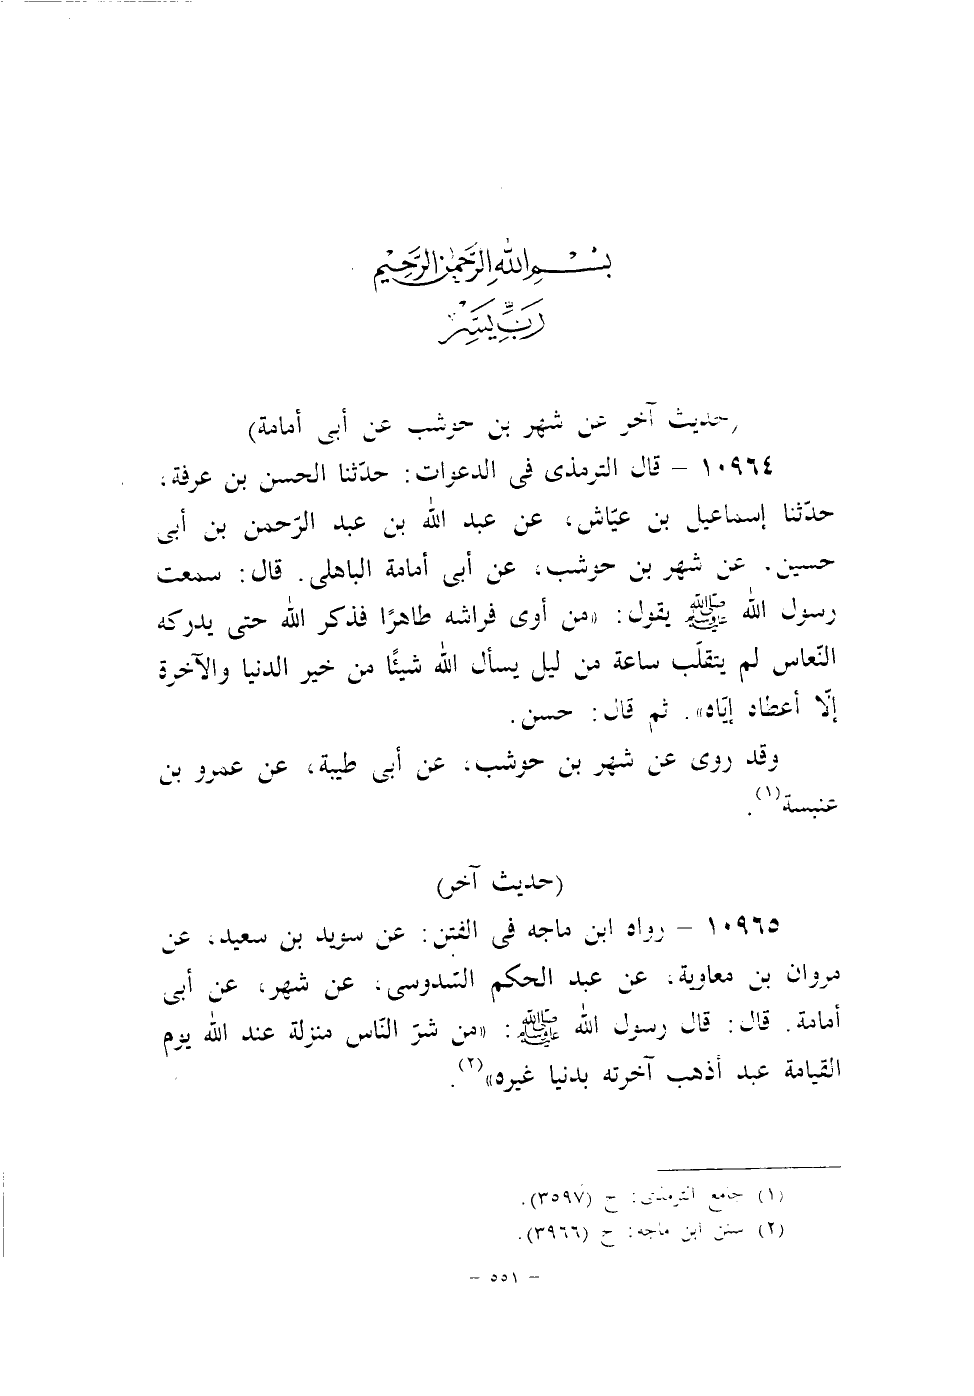 بسم الله الرحمن الرحيم
رب يسر
(حديث آخر عن شهر بن حوشب عن أبى أمامة)
١٠٩٦٤ – قال الترمذى فى الدعوات: حدّثنا الحسن بن عرفة،
حدّثنا إسماعيل بن عيّاش، عن عبد الله بن عبد الرّحمن بن أبى
حسين. عن شهر بن حوشب، عن أبى أمامة الباهلى. قال: سمعت
رسول الله ﷺ يقول: «من أوى فراشه طاهرًا فذكر الله حتى يدركه
النّعاس لم يتقلّب ساعة من ليل يسأل الله شيئًا من خير الدنيا والآخرة
إلّا أعطاه إيّاه». ثم قال: حسن.
وقد روى عن شهر بن حوشب، عن أبى طيبة، عن عمرو بن
عنبسة(١).
(حديث آخر)
١٠٩٦٥ – رواه ابن ماجه فى الفتن: عن سويد بن سعيد، عن
مروان بن معاوية، عن عبد الحكم السّدوسى، عن شهر، عن أبى
أمامة. قال: قال رسول الله ﷺ: «من شرّ النّاس منزلة عند الله يوم
القيامة عبد أذهب آخرته بدنيا غيره»(٢).
(١) جامع الترمذى: ح (٣٥٩٧).
(٢) سنن ابن ماجه: ح (٣٩٦٦).
– ٥٥١ –